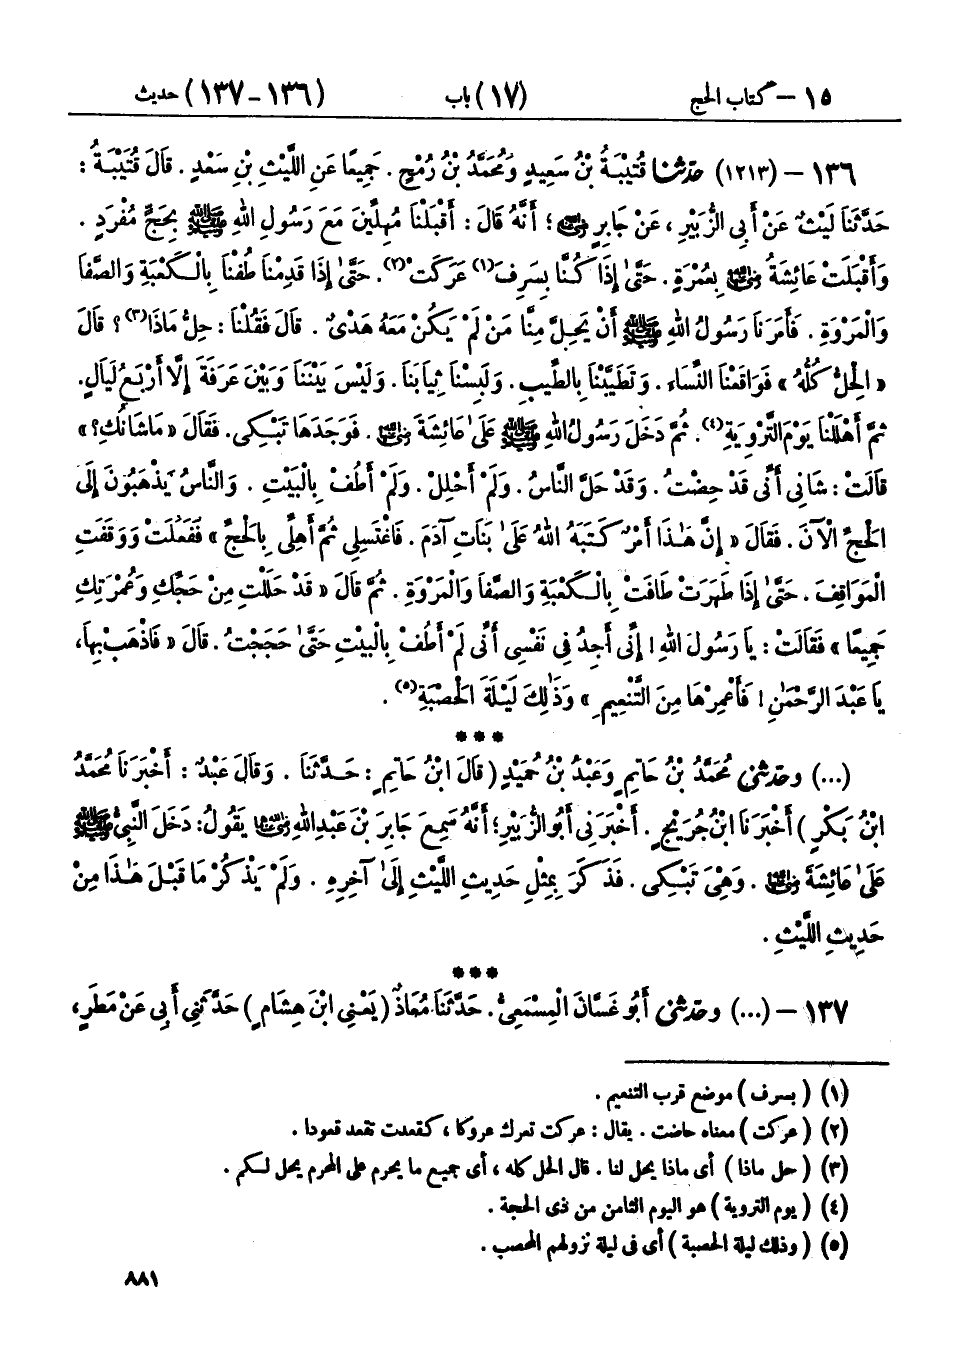 ١٥ – كتاب الحج (١٧) باب (١٣٦-١٣٧) حديث
١٣٦ – (١٢١٣) حدثنا قُتَيْبَةُ بْنُ سَعِيدٍ وَمُحَمَّدُ بْنُ رُمْحٍ . جَمِيعًا عَنِ اللَّيْثِ بْنِ سَعْدٍ . قَالَ قُتَيْبَةُ :
حَدَّثَنَا لَيْثٌ عَنْ أَبِي الزُّبَيْرِ ، عَنْ جَابِرٍ رضي الله عنه ؛ أَنَّهُ قَالَ : أَقْبَلْنَا مُهِلِّينَ مَعَ رَسُولِ اللهِ ﷺ بِحَجٍّ مُفْرَدٍ .
وَأَقْبَلَتْ عَائِشَةُ رضي الله عنها بِعُمْرَةٍ . حَتَّىٰ إِذَا كُنَّا بِسَرِفَ(١) عَرَكَتْ(٢) . حَتَّىٰ إِذَا قَدِمْنَا طُفْنَا بِالْكَعْبَةِ وَالصَّفَا
وَالْمَرْوَةِ . فَأَمَرَنَا رَسُولُ اللهِ ﷺ أَنْ يَحِلَّ مِنَّا مَنْ لَمْ يَكُنْ مَعَهُ هَدْىٌ . قَالَ فَقُلْنَا : حِلُّ مَاذَا(٣) ؟ قَالَ
« الْحِلُّ كُلُّهُ » فَوَاقَعْنَا النِّسَاءَ . وَتَطَيَّبْنَا بِالطِّيبِ . وَلَبِسْنَا ثِيَابَنَا . وَلَيْسَ بَيْنَنَا وَبَيْنَ عَرَفَةَ إِلَّا أَرْبَعُ لَيَالٍ.
ثُمَّ أَهْلَلْنَا يَوْمَ التَّرْوِيَةِ(٤). ثُمَّ دَخَلَ رَسُولُ اللهِ ﷺ عَلَىٰ عَائِشَةَ رضي الله عنها . فَوَجَدَهَا تَبْكِى. فَقَالَ « مَا شَانُكِ؟ »
قَالَتْ : شَانِى أَنِّى قَدْ حِضْتُ . وَقَدْ حَلَّ النَّاسُ . وَلَمْ أَحْلِلْ . وَلَمْ أَطُفْ بِالْبَيْتِ . وَالنَّاسُ يَذْهَبُونَ إِلَى
الْحَجِّ الْآنَ . فَقَالَ « إِنَّ هَٰذَا أَمْرٌ كَتَبَهُ اللهُ عَلَىٰ بَنَاتِ آدَمَ . فَاغْتَسِلِى ثُمَّ أَهِلِّى بِالْحَجِّ » فَفَعَلَتْ وَوَقَفَتِ
الْمَوَاقِفَ . حَتَّىٰ إِذَا طَهَرَتْ طَافَتْ بِالْكَعْبَةِ وَالصَّفَا وَالْمَرْوَةِ . ثُمَّ قَالَ « قَدْ حَلَلْتِ مِنْ حَجِّكِ وَعُمْرَتِكِ
جَمِيعًا » فَقَالَتْ : يَا رَسُولَ اللهِ ! إِنِّى أَجِدُ فِى نَفْسِى أَنِّى لَمْ أَطُفْ بِالْبَيْتِ حَتَّىٰ حَجَجْتُ . قَالَ « فَاذْهَبْ بِهَا،
يَا عَبْدَ الرَّحْمَٰنِ ! فَأَعْمِرْهَا مِنَ التَّنْعِيمِ » وَذَٰلِكَ لَيْلَةَ الْحَصْبَةِ(٥) .
***
(...) وحدثنى مُحَمَّدُ بْنُ حَاتِمٍ وَعَبْدُ بْنُ حُمَيْدٍ ( قَالَ ابْنُ حَاتِمٍ : حَدَّثَنَا . وَقَالَ عَبْدٌ : أَخْبَرَنَا مُحَمَّدُ
ابْنُ بَكْرٍ ) أَخْبَرَنَا ابْنُ جُرَيْجٍ . أَخْبَرَنِى أَبُو الزُّبَيْرِ ؛ أَنَّهُ سَمِعَ جَابِرَ بْنَ عَبْدِ اللهِ رضي الله عنهما يَقُولُ: دَخَلَ النَّبِىُّ ﷺ
عَلَىٰ عَائِشَةَ رضي الله عنها . وَهِىَ تَبْكِى . فَذَكَرَ بِمِثْلِ حَدِيثِ اللَّيْثِ إِلَىٰ آخِرِهِ . وَلَمْ يَذْكُرْ مَا قَبْلَ هَٰذَا مِنْ
حَدِيثِ اللَّيْثِ .
***
١٣٧ – (...) وحدثنى أَبُو غَسَّانَ الْمِسْمَعِىُّ . حَدَّثَنَا مُعَاذٌ ( يَعْنِى ابْنَ هِشَامٍ ) حَدَّثَنِى أَبِى عَنْ مَطَرٍ،
(١) ( بسرف ) موضع قرب التنعيم .
(٢) ( عركت ) معناه حاضت . يقال : عركت تعرك عروكا ، كقعدت تقعد قعودا .
(٣) ( حل ماذا ) أى ماذا يحل لنا . قال الحل كله ، أى جميع ما يحرم على المحرم يحل لكم .
(٤) ( يوم التروية ) هو اليوم الثامن من ذى الحجة .
(٥) ( وذلك ليلة الحصبة ) أى فى ليلة نزولهم المحصب .
٨٨١